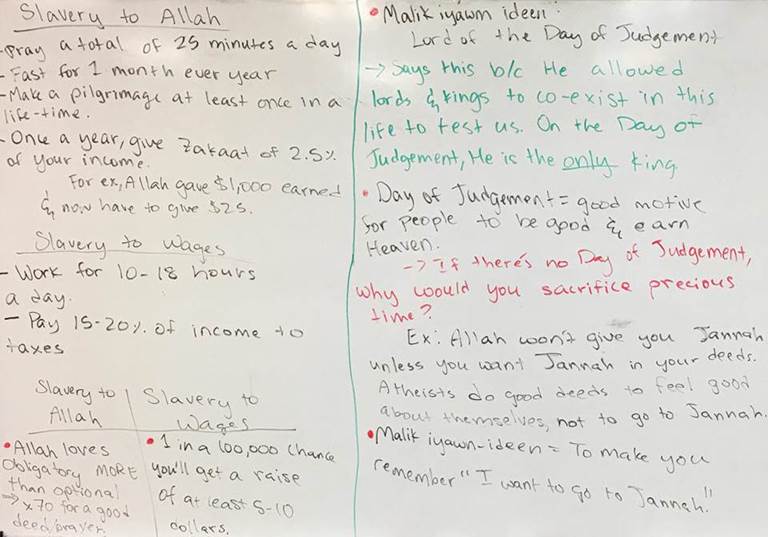 Slavery to Allah
- Pray a total of 25 minutes a day
- Fast for 1 month ever year
- Make a pilgrimage at least once in a
life-time.
- Once a year, give Zakaat of 2.5%
of your income.
For ex, Allah gave $1,000 earned
& now have to give $25.
Slavery to Wages
- Work for 10-18 hours
a day.
- Pay 15-20% of income to
taxes
Slavery to
Allah
• Allah loves
obligatory MORE
than optional
→ x70 for a good
deed/prayer.
Slavery to
Wages
• 1 in a 100,000 chance
you'll get a raise
of at least 5-10
dollars.
• Malik iyawm ideen:
Lord of the Day of Judgement
→ Says this b/c He allowed
lords & kings to co-exist in this
life to test us. On the Day of
Judgement, He is the only king
• Day of Judgement = good motive
for people to be good & earn
Heaven.
→ If there's no Day of Judgement,
why would you sacrifice precious
time?
Ex: Allah won't give you Jannah
unless you want Jannah in your deeds.
Atheists do good deeds to feel good
about themselves, not to go to Jannah.
• Malik iyawn-ideen = To make you
remember "I want to go to Jannah."